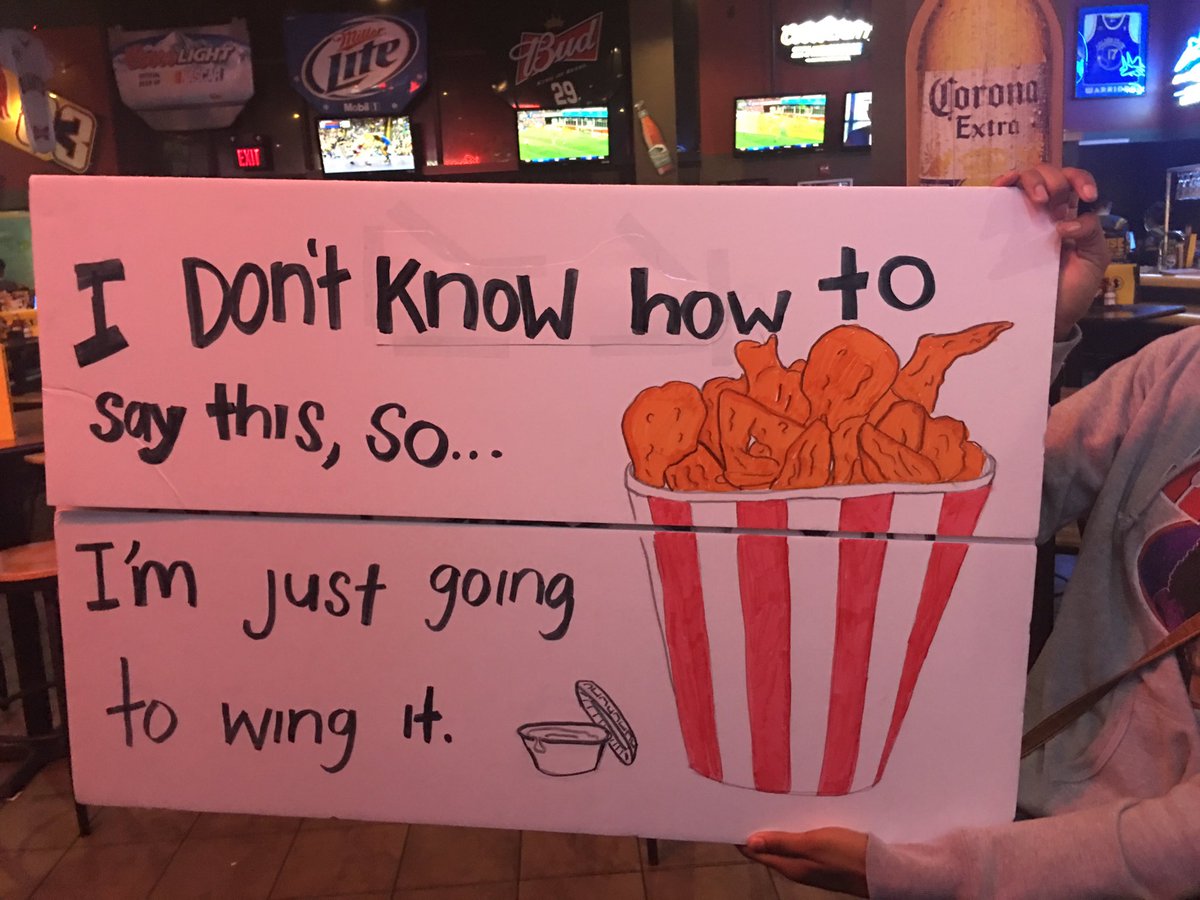 Coors LIGHT
OFFICIAL BEER OF NASCAR
Miller
Lite
Mobil 1
Bud
29
EXIT
3
Corona
Extra
WARRIORS
I Don't know how to
say this, so...
I'm just going
to wing it.